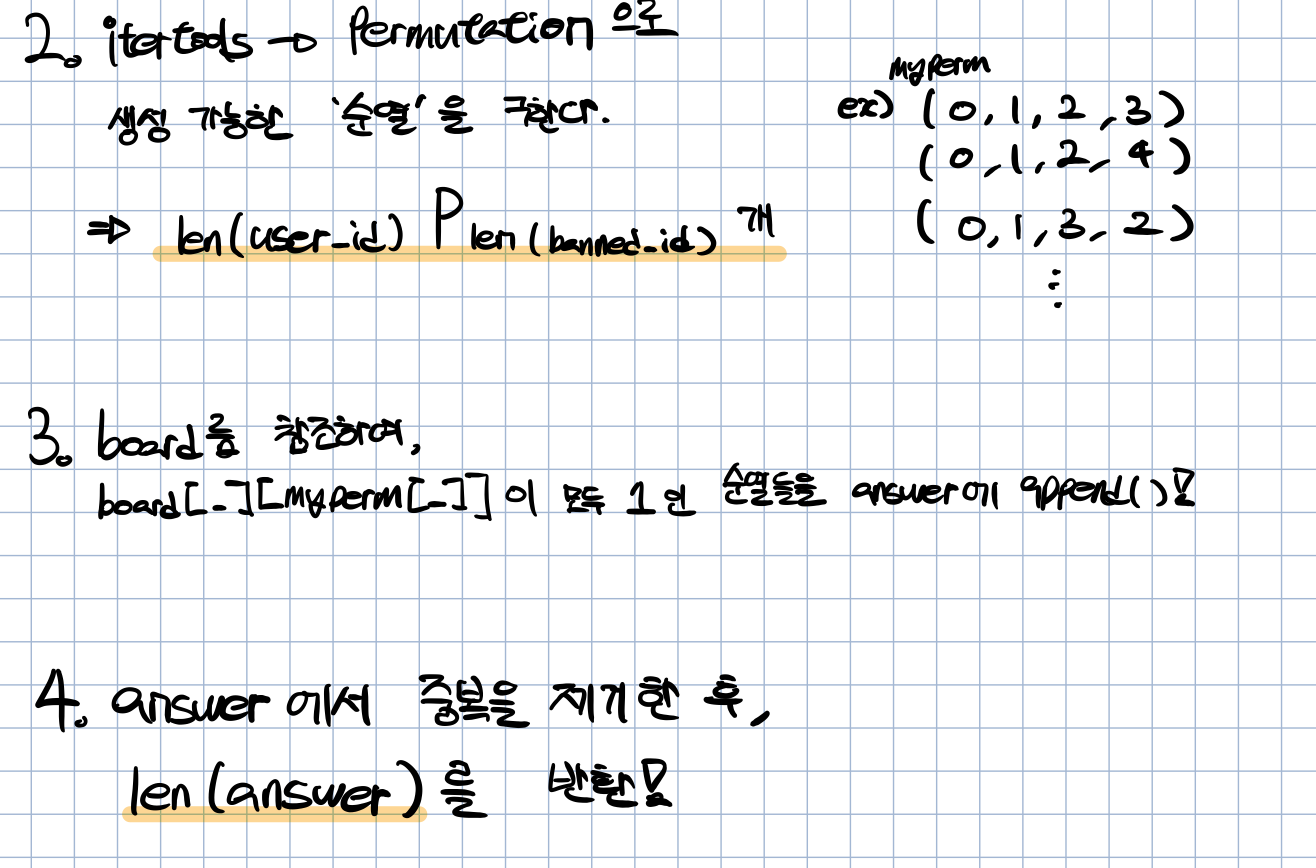 2. itertools → Permutation 으로
생성 가능한 '순열'을 구한다.
⇒ len(user_id) P len(banned_id) 개
myperm
ex) (0, 1, 2, 3)
(0, 1, 2, 4)
(0, 1, 3, 2)
⋮
3. board를 참조하여,
board[_][myperm[_]] 이 모두 1인 순열들을 answer에 append()!
4. answer에서 중복을 제거한 후,
len(answer)를 반환!